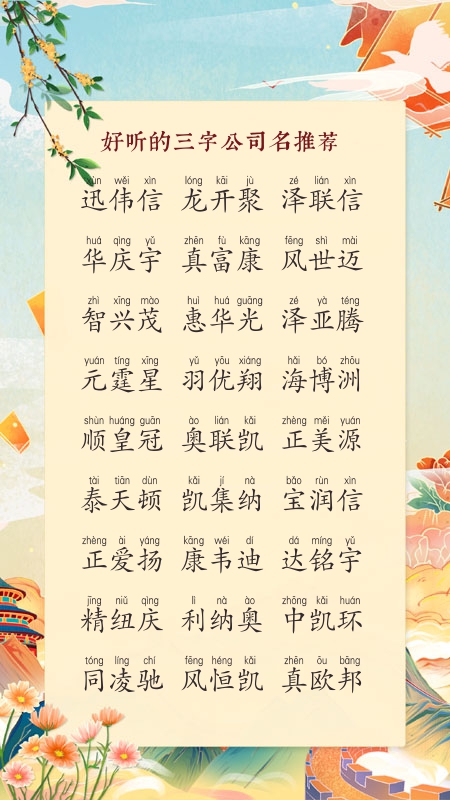 好听的三字公司名推荐
xùn wěi xìn lóng kāi jù zé lián xìn
迅伟信 龙开聚 泽联信
huá qìng yǔ zhēn fù kāng fēng shì mài
华庆宇 真富康 风世迈
zhì xīng mào huì huá guāng zé yà téng
智兴茂 惠华光 泽亚腾
yuán tíng xīng yǔ yōu xiáng hǎi bó zhōu
元霆星 羽优翔 海博洲
shùn huáng guān ào lián kǎi zhèng měi yuán
顺皇冠 奥联凯 正美源
tài tiān dùn kǎi jí nà bǎo rùn xìn
泰天顿 凯集纳 宝润信
zhèng ài yáng kāng wéi dí dá míng yǔ
正爱扬 康韦迪 达铭宇
jīng niǔ qìng lì nà ào zhōng kǎi huán
精纽庆 利纳奥 中凯环
tóng líng chí fēng héng kǎi zhēn ōu bāng
同凌驰 风恒凯 真欧邦